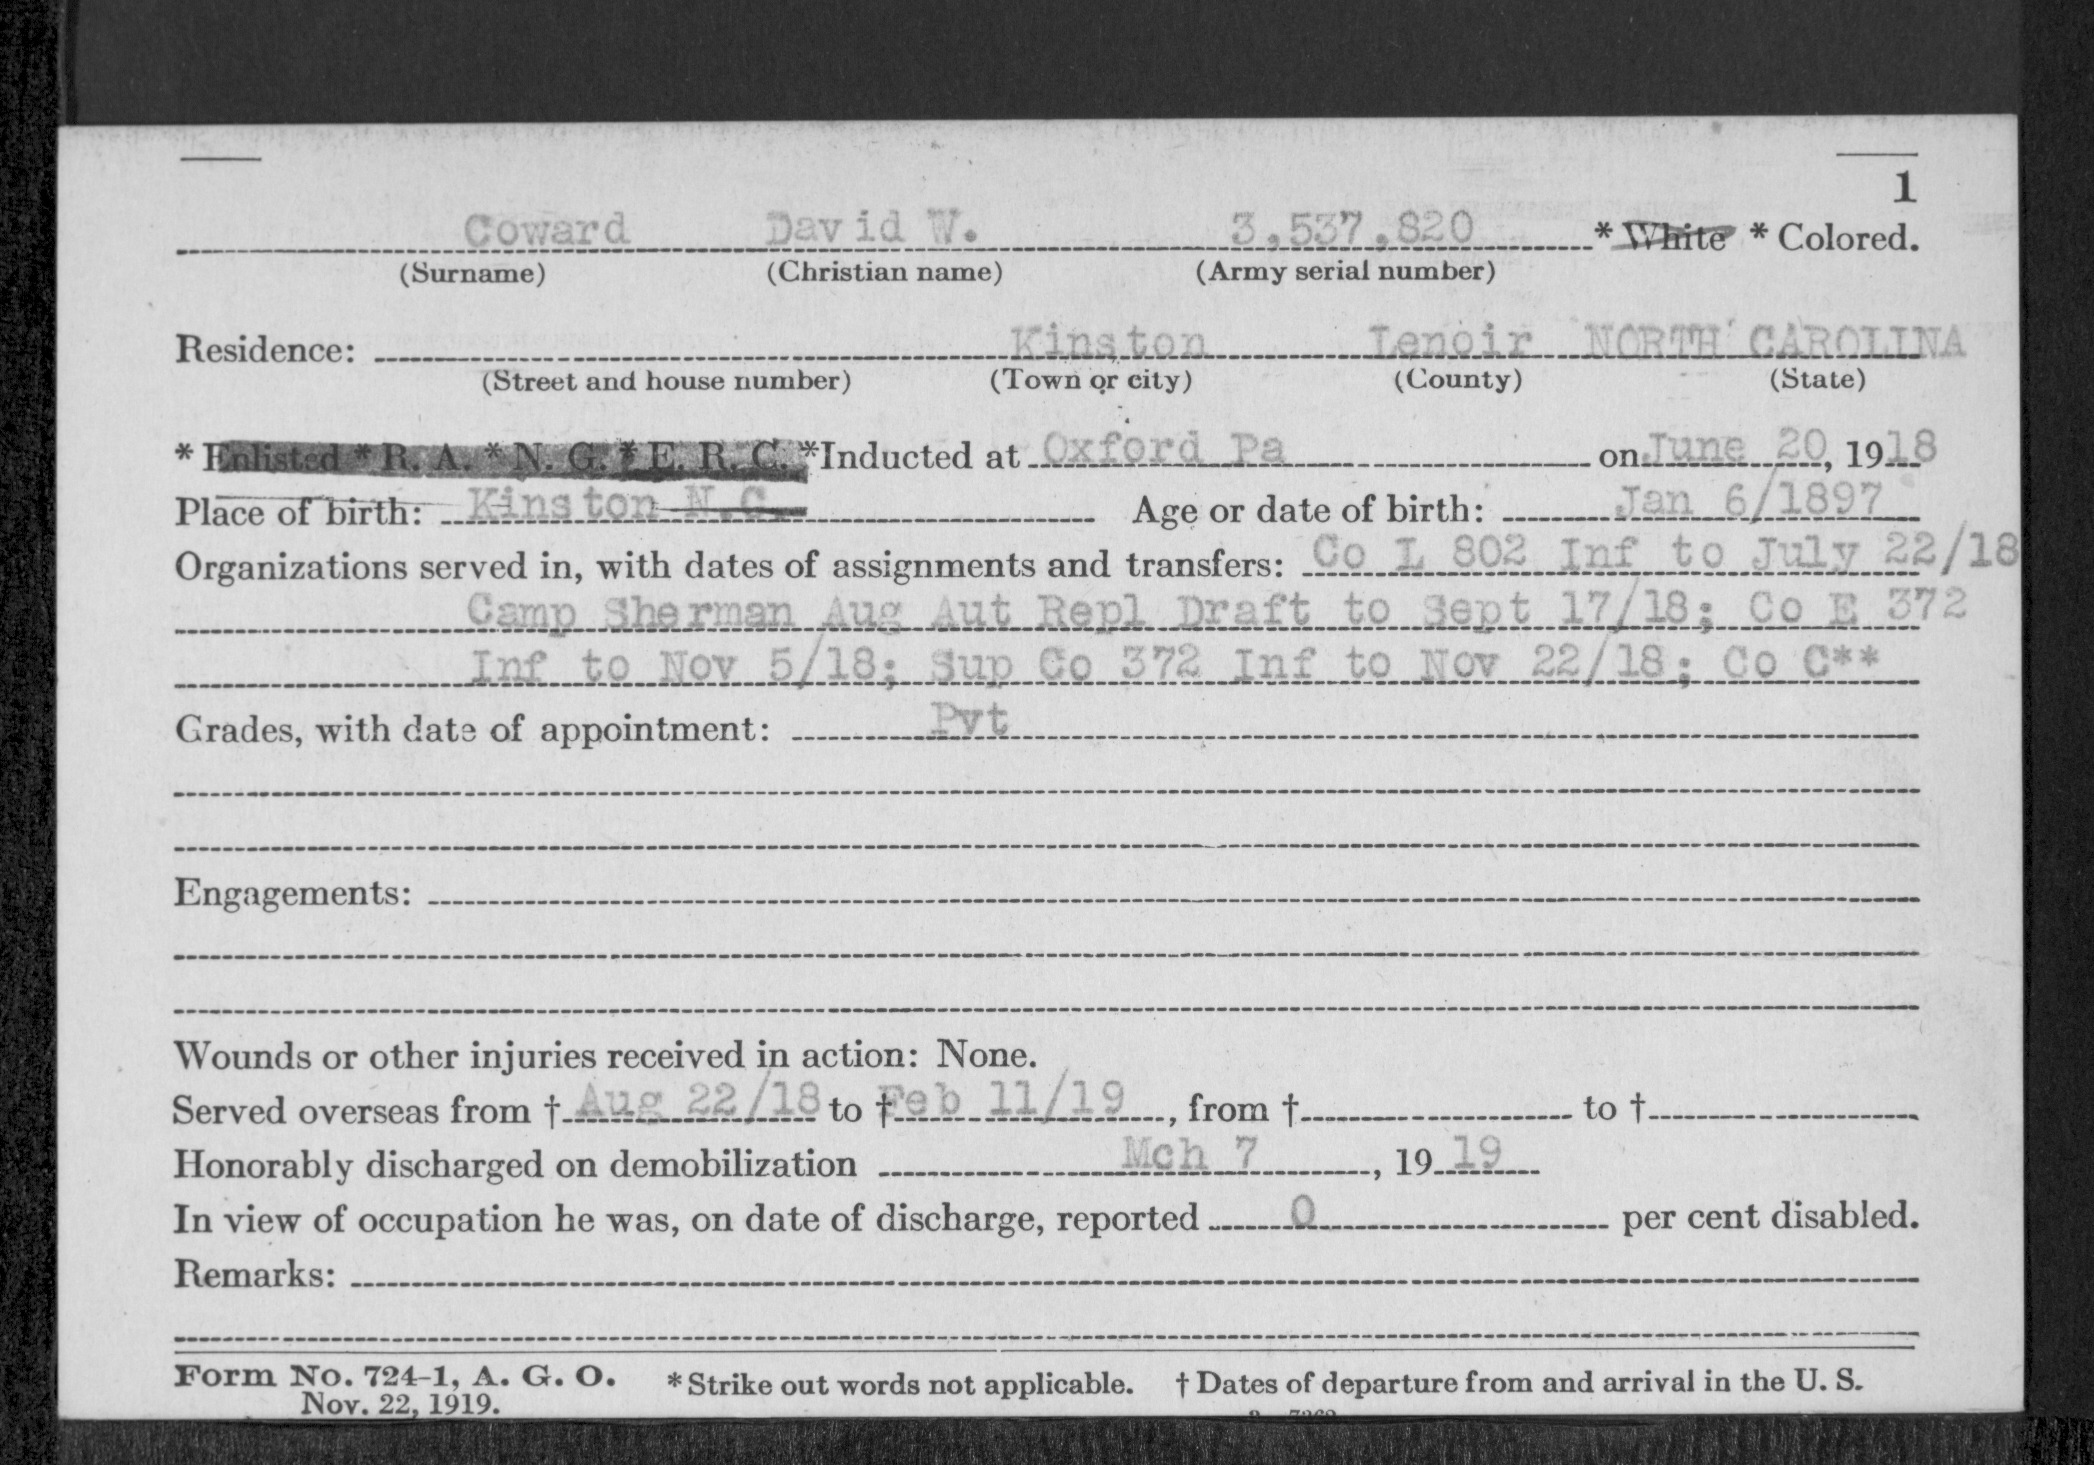 1
Coward David W. 3,537,820 * White * Colored.
(Surname) (Christian name) (Army serial number)
Residence: Kinston Lenoir NORTH CAROLINA
(Street and house number) (Town or city) (County) (State)
* Enlisted * R. A. * N. G. * E. R. C. *Inducted at Oxford Pa on June 20, 1918
Place of birth: Kinston N.C. Age or date of birth: Jan 6/1897
Organizations served in, with dates of assignments and transfers: Co L 802 Inf to July 22/18
Camp Sherman Aug Aut Repl Draft to Sept 17/18; Co E 372
Inf to Nov 5/18; Sup Co 372 Inf to Nov 22/18; Co C**
Grades, with date of appointment: Pvt
Engagements:
Wounds or other injuries received in action: None.
Served overseas from † Aug 22/18 to † Feb 11/19, from † to †
Honorably discharged on demobilization Mch 7, 1919
In view of occupation he was, on date of discharge, reported 0 per cent disabled.
Remarks:
Form No. 724-1, A. G. O. * Strike out words not applicable. † Dates of departure from and arrival in the U. S.
Nov. 22, 1919.